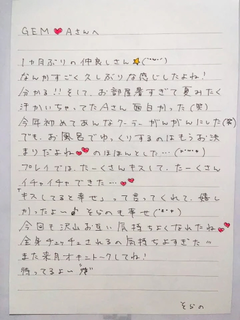 GEM♥Aさんへ
1ヵ月ぶりの仲良しさん
なんかすごく久しぶりな感じしたよね!
分かる!!そして、お部屋暑すぎて夏みたく
汗かいちゃってたAさん面白かった(笑)
今年初めてあんなクーラーがんがんにした(笑)
でも、お風呂でゆっくりするのはもうお決
まりだよね♥のほほんとした…
プレイでは、たーくさんキスして、たーくさん
イチャイチャできた…
「キスしてると幸せ」って言ってくれて、嬉し
かったよー♪その も幸せ
今回も沢山お互い気持ちよくなれたね
全身チュッチュされるの気持ちよすぎた
また来月オキニトークしてね!
待ってるよー
その